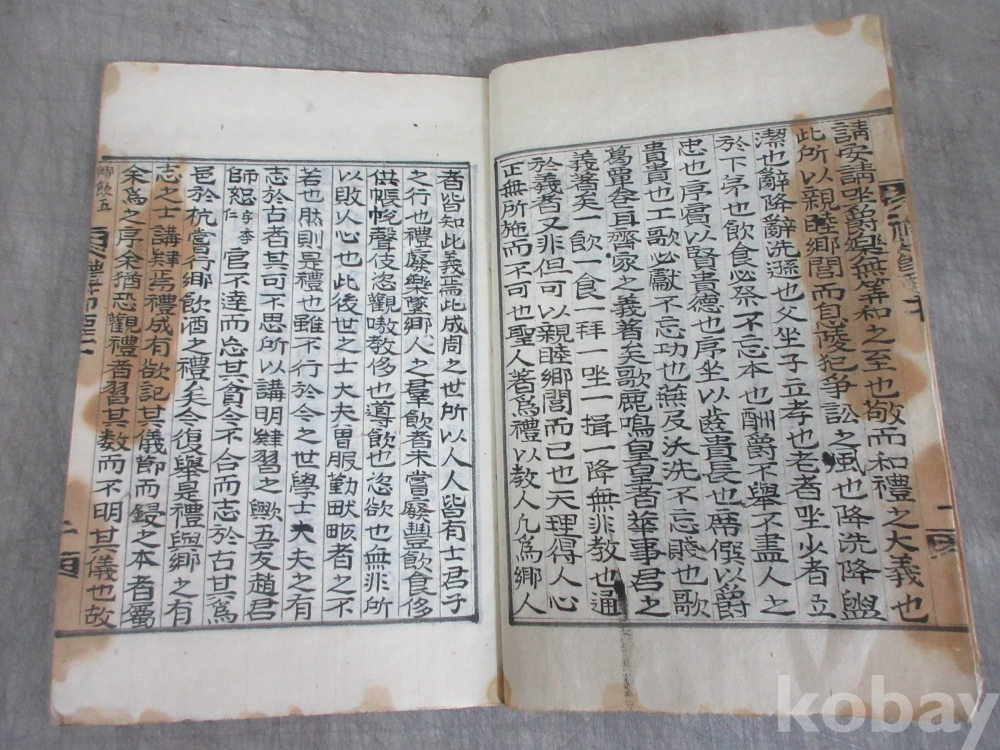 請安請坐爵無筭和之至也敬而和禮之大義也
此所以親睦鄉閭而息陵犯爭訟之風也降洗降盥
潔也辭降辭洗遜也父坐子立孝也老者坐少者立
於下弟也飮食必祭不忘本也酬爵不擧不盡人之
忠也序賓以賢貴德也序坐以齒貴長也席僎以爵
貴貴也工歌必獻不忘功也燕及沃洗不忘賤也歌
葛覃卷耳齊家之義著矣歌鹿鳴皇皇者華事君之
義著矣一飮一食一拜一坐一揖一降無非敎也通
於義者又非但可以親睦鄉閭而已也天理得人心
正無所施而不可也聖人著爲禮以敎人凡爲鄉人
者皆知此義焉此成周之世所以人人皆有士君子
之行也禮廢樂墜鄉人之羣飮者未嘗廢豐飮食侈
供帳聲伎恣觀呶敎侈也導飮也恣欲也無非所
以敗人心也此後世之士大夫曾服勤畎畝者之不
若也然則是禮也雖不行於今之世學士大夫之有
志於古者其可不思所以講明肄習之歟吾友趙君
師恕官不達而忘其貧今不合而志於古其爲
邑於杭嘗行鄉飮酒之禮矣今復擧是禮與鄉之有
志之士講肄焉禮成有欲記其儀節而鋟之本者屬
余爲之序余猶恐觀禮者習其數而不明其儀也故
鄉飮五
kobay